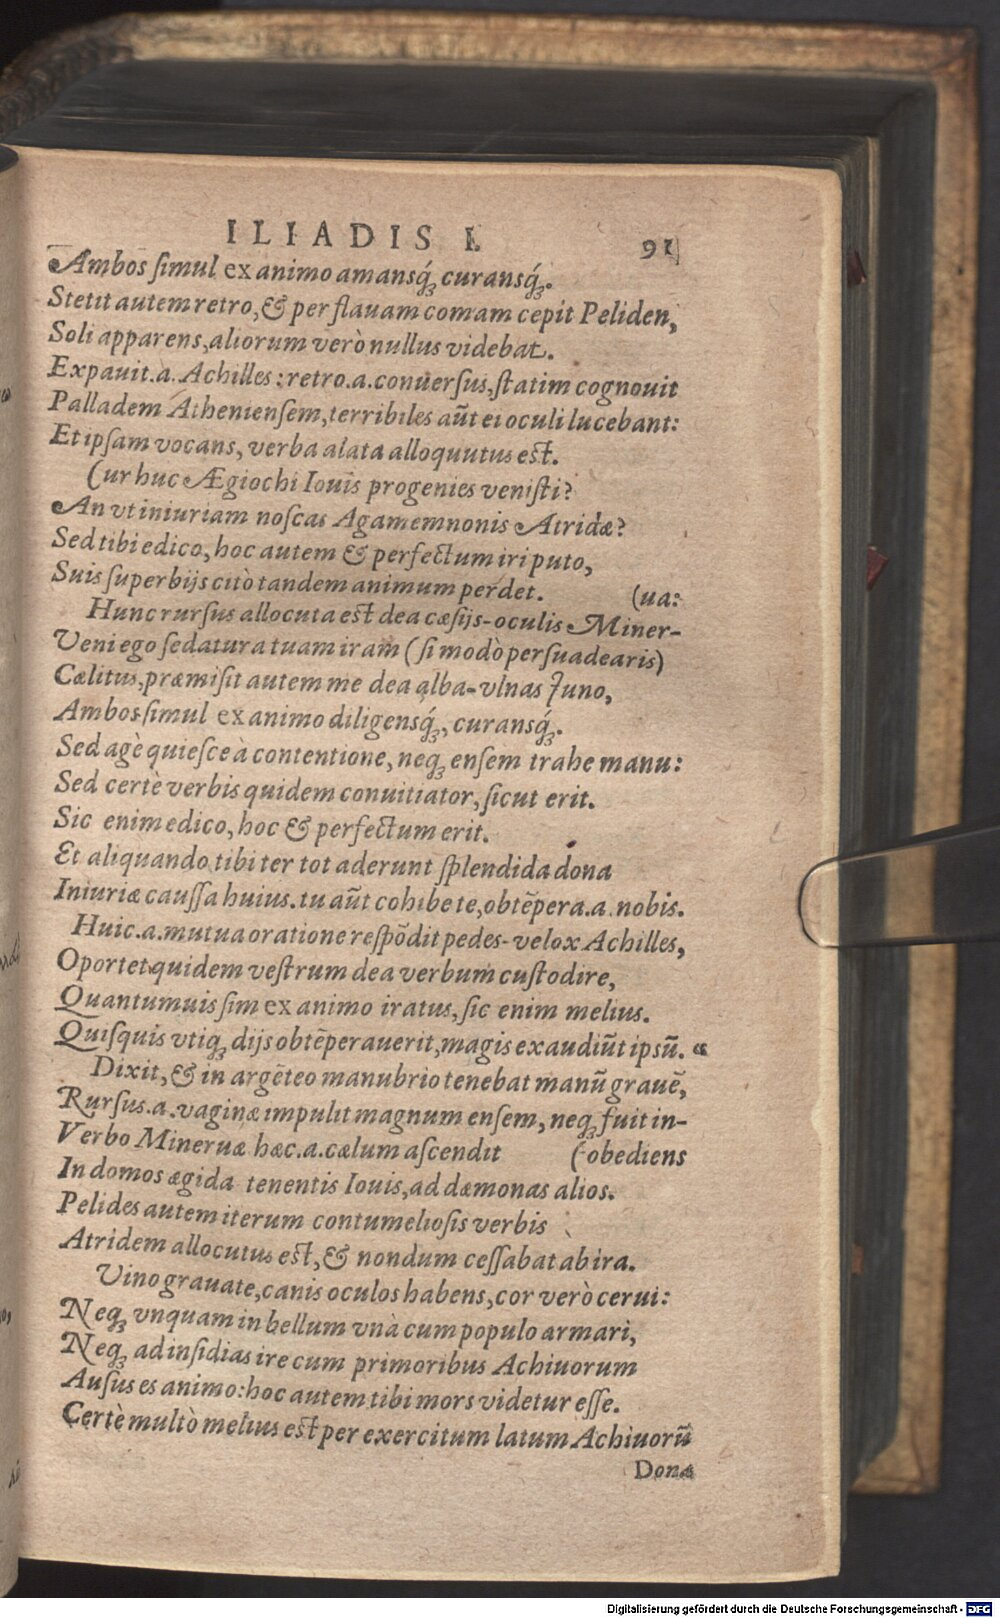 ILIADIS I. 91
Ambos simul ex animo amansq́ꝫ curansq́ꝫ.
Stetit autem retro, & per flauam comam cepit Peliden,
Soli apparens, aliorum verò nullus videbat.
Expauit.a. Achilles: retro.a. conuersus, statim cognouit
Palladem Atheniensem, terribiles aūt ei oculi lucebant:
Et ipsam vocans, verba alata alloquutus est.
Cur huc Ægiochi Iouis progenies venisti?
An vt iniuriam noscas Agamemnonis Atridæ?
Sed tibi edico, hoc autem & perfectum iri puto,
Suis superbijs citò tandem animum perdet. (ua:
Hunc rursus allocuta est dea cæsijs-oculis Miner-
Veni ego sedatura tuam iram (si modò persuadearis)
Cælitus, præmisit autem me dea alba-vlnas Iuno,
Ambos simul ex animo diligensq́ꝫ, curansq́ꝫ.
Sed agè quiesce à contentione, neqꝫ ensem trahe manu:
Sed certè verbis quidem conuitiator, sicut erit.
Sic enim edico, hoc & perfectum erit.
Et aliquando tibi ter tot aderunt splendida dona
Iniuriæ caussa huius. tu aūt cohibe te, obtēpera.a. nobis.
Huic.a. mutua oratione respōdit pedes-velox Achilles,
Oportet quidem vestrum dea verbum custodire,
Quantumuis sim ex animo iratus, sic enim melius.
Quisquis vtiqꝫ dijs obtēperauerit, magis exaudiūt ipsū. “
Dixit, & in argēteo manubrio tenebat manū grauē,
Rursus.a. vaginæ impulit magnum ensem, neqꝫ fuit in-
Verbo Mineruæ hæc.a. cælum ascendit (obediens
In domos ægida tenentis Iouis, ad dæmonas alios.
Pelides autem iterum contumeliosis verbis
Atridem allocutus est, & nondum cessabat ab ira.
Vino grauate, canis oculos habens, cor verò cerui:
Neqꝫ vnquam in bellum vnà cum populo armari,
Neqꝫ ad insidias ire cum primoribus Achiuorum
Ausus es animo: hoc autem tibi mors videtur esse.
Certè multò melius est per exercitum latum Achiuorū
Dona
Digitalisierung gefördert durch die Deutsche Forschungsgemeinschaft - DFG